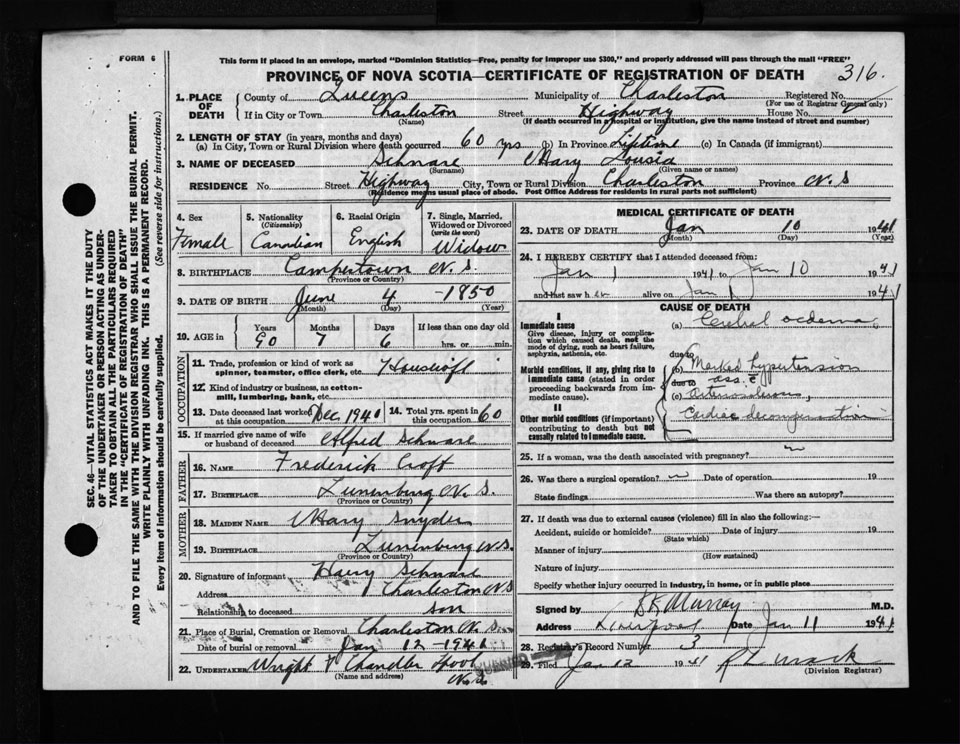 FORM 6
This form if placed in an envelope, marked "Dominion Statistics—Free, penalty for improper use $300," and properly addressed will pass through the mail "FREE"
PROVINCE OF NOVA SCOTIA—CERTIFICATE OF REGISTRATION OF DEATH 316.
1. PLACE OF DEATH
County of Queens Municipality of Charleston Registered No.
(For use of Registrar General only)
If in City or Town Charleston Street Highway House No.
(Name) (If death occurred in a hospital or institution, give the name instead of street and number)
2. LENGTH OF STAY (in years, months and days)
(a) In City, Town or Rural Division where death occurred 60 yrs (b) In Province Lifetime (c) In Canada (if immigrant)
3. NAME OF DECEASED Schnare Mary Lousia
(Surname) (Given name or names)
RESIDENCE No. Street Highway City, Town or Rural Division Charleston Province N.S
(Residence means usual place of abode. Post Office Address for residents in rural parts not sufficient)
4. Sex Female
5. Nationality (Citizenship) Canadian
6. Racial Origin English
7. Single, Married, Widowed or Divorced (write the word) Widow
8. BIRTHPLACE Campertown N.S.
(Province or Country)
9. DATE OF BIRTH June 4 -1850
(Month) (Day) (Year)
10. AGE in Years Months Days If less than one day old
90 7 6 hrs. or min.
OCCUPATION
11. Trade, profession or kind of work as spinner, teamster, office clerk, etc.
12. Kind of industry or business, as cotton-mill, lumbering, bank, etc.
13. Date deceased last worked at this occupation Dec. 1940 14. Total yrs. spent in 60
15. If married give name of wife or husband of deceased Alfred Schnare
FATHER
16. NAME Frederick Croft
17. BIRTHPLACE Lunenburg N.S.
(Province or Country)
MOTHER
18. MAIDEN NAME Mary Snyder
19. BIRTHPLACE Lunenburg N.S.
(Province or Country)
20. Signature of informant Harry Schnare
Address Charleston N.S
Relationship to deceased son
21. Place of Burial, Cremation or Removal Charleston N.S.
Date of burial or removal Jan 12 1941
22. UNDERTAKER Wright &
(Name and address) N.S.
MEDICAL CERTIFICATE OF DEATH
23. DATE OF DEATH Jan 10 1941
(Month) (Day) (Year)
24. I HEREBY CERTIFY that I attended deceased from:
Jan 1 1941 to Jan 10 1941
and last saw h er alive on Jan 1 1941
CAUSE OF DEATH
I
Immediate cause
Give disease, injury or complication which caused death, not the mode of dying, such as heart failure, asphyxia, asthenia, etc.
(a) oedema
due to
Morbid conditions, if any, giving rise to immediate cause (stated in order proceeding backwards from immediate cause).
(b) Marked hypertension
due to ass. c
(c) Arteriosclerosis,
II
Other morbid conditions (if important) contributing to death but not causally related to immediate cause.
Cardiac decompensation
25. If a woman, was the death associated with pregnancy?
26. Was there a surgical operation? Date of operation 19
State findings Was there an autopsy?
27. If death was due to external causes (violence) fill in also the following:—
Accident, suicide or homicide? Date of injury 19
(State which)
Manner of injury
(How sustained)
Nature of injury
Specify whether injury occurred in industry, in home, or in public place
Signed by Murray M.D.
Address Liverpool Date Jan 11 1941
28. Registrar's Record Number 3
29. Filed Jan 12 1941
(Division Registrar)
SEC. 46—VITAL STATISTICS ACT MAKES IT THE DUTY
OF THE UNDERTAKER OR PERSON ACTING AS UNDER-
TAKER TO OBTAIN ALL THE PARTICULARS REQUIRED
IN THE "CERTIFICATE OF REGISTRATION OF DEATH"
AND TO FILE THE SAME WITH THE DIVISION REGISTRAR WHO SHALL ISSUE THE BURIAL PERMIT.
WRITE PLAINLY WITH UNFADING INK. THIS IS A PERMANENT RECORD.
Every item of information should be carefully supplied. (See reverse side for instructions.)